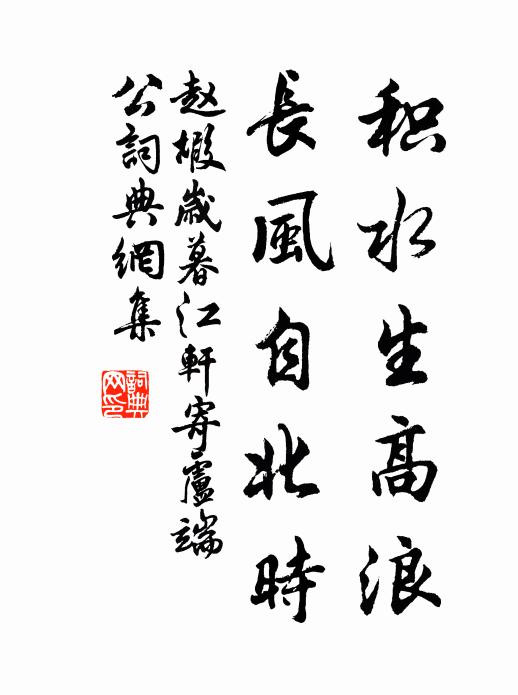 积水生高浪
長風自北時
赵嘏歲暮江軒寄盧端
公詞典網集
詞典
网印